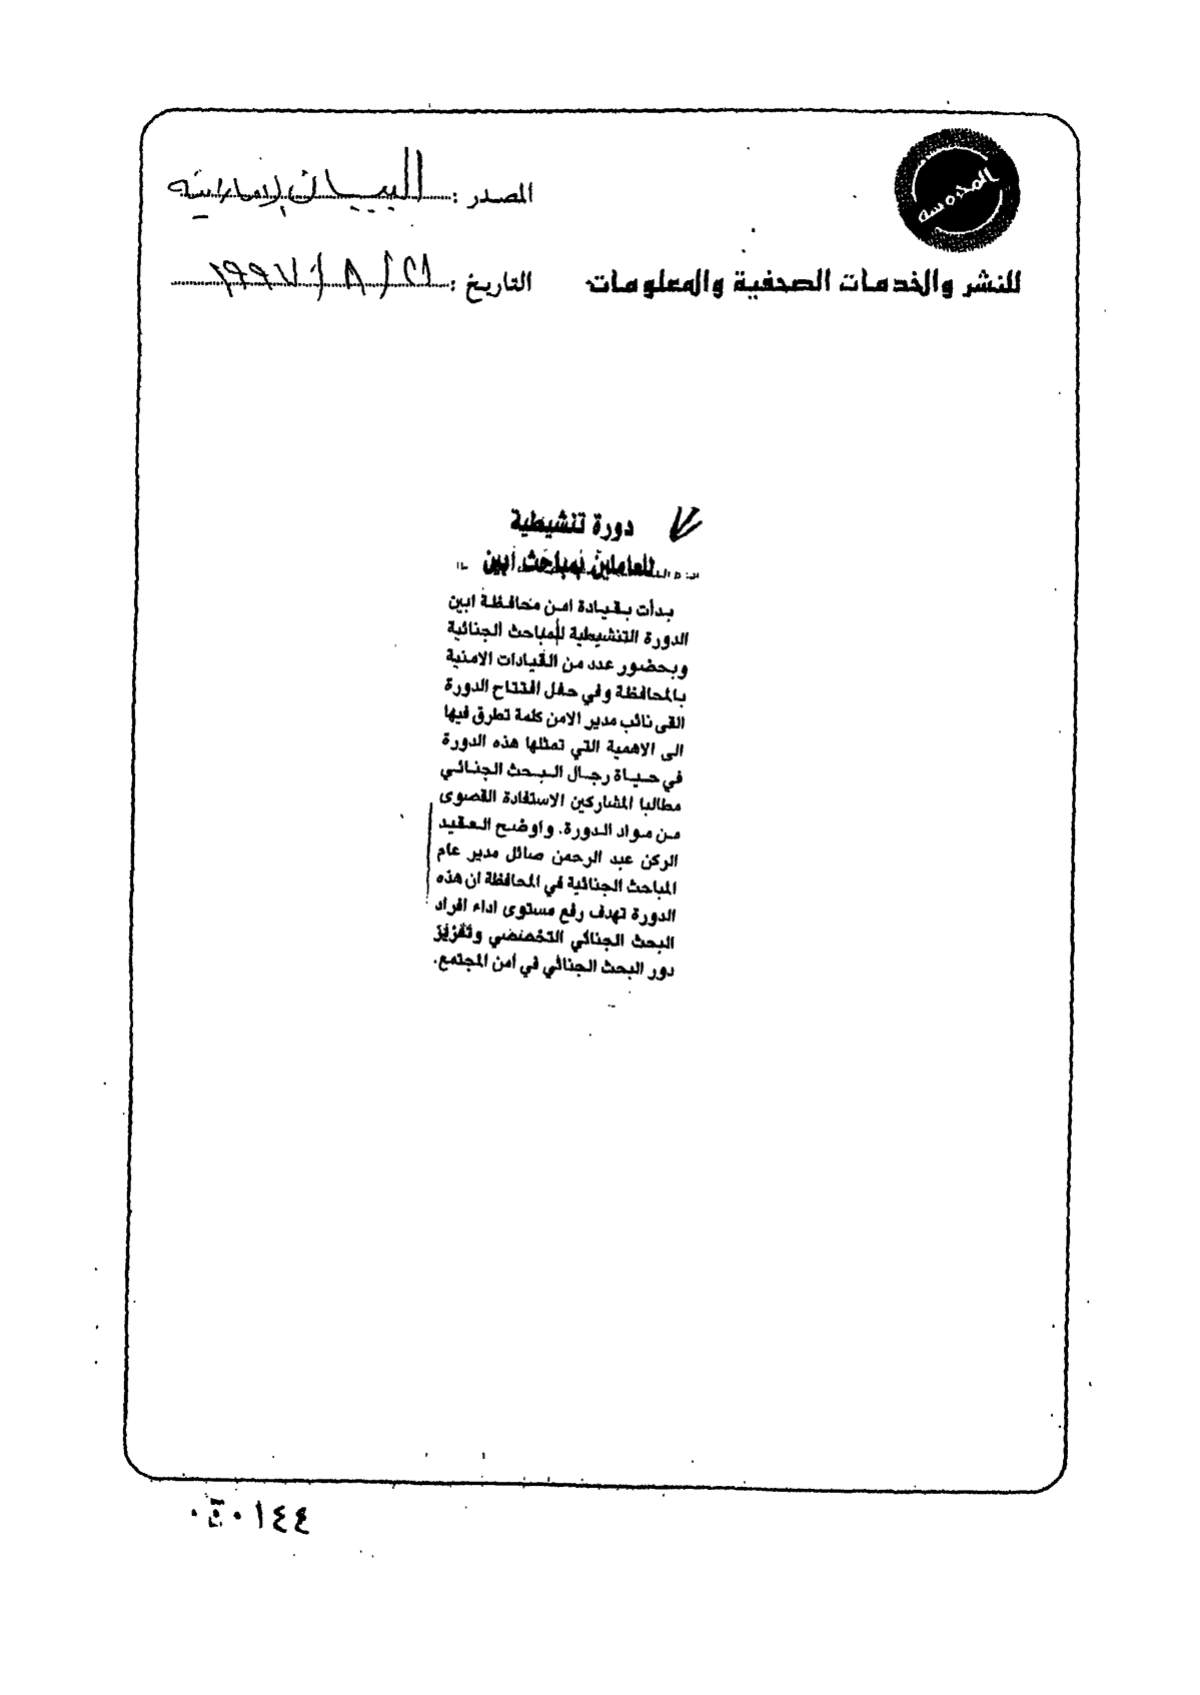 المحروسة
للنشر والخدمات الصحفية والمعلومات
المصدر : البيان الإماراتية
التاريخ : ٢١ / ٨ / ١٩٩٧
دورة تنشيطية
للعاملين بمباحث أبين
بدأت بقيادة امن محافظة ابين
الدورة التنشيطية للمباحث الجنائية
وبحضور عدد من القيادات الامنية
بالمحافظة وفي حفل افتتاح الدورة
القى نائب مدير الامن كلمة تطرق فيها
الى الاهمية التي تمثلها هذه الدورة
في حياة رجال البحث الجنائي
مطالبا المشاركين الاستفادة القصوى
من مواد الدورة. واوضح العقيد
الركن عبد الرحمن صائل مدير عام
المباحث الجنائية في المحافظة ان هذه
الدورة تهدف رفع مستوى اداء افراد
البحث الجنائي التخصصي وتعزيز
دور البحث الجنائي في أمن المجتمع.